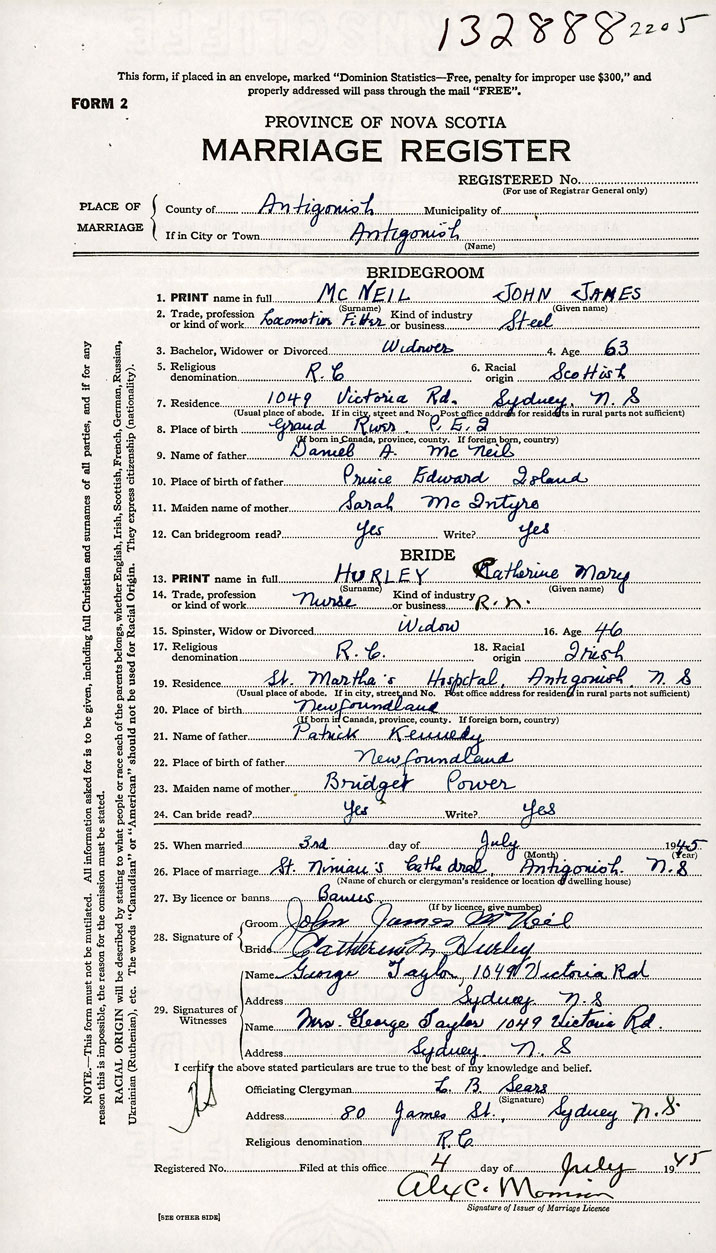 132888 2205
This form, if placed in an envelope, marked "Dominion Statistics—Free, penalty for improper use $300," and
properly addressed will pass through the mail "FREE".
FORM 2
PROVINCE OF NOVA SCOTIA
MARRIAGE REGISTER
REGISTERED No.
(For use of Registrar General only)
PLACE OF MARRIAGE
County of Antigonish Municipality of
If in City or Town Antigonish
(Name)
BRIDEGROOM
1. PRINT name in full MC NEIL JOHN JAMES
(Surname) (Given name)
2. Trade, profession or kind of work Locomotive Fitter Kind of industry or business Steel
3. Bachelor, Widower or Divorced Widower 4. Age 63
5. Religious denomination R. C 6. Racial origin Scottish
7. Residence 1049 Victoria Rd. Sydney, N. S
(Usual place of abode. If in city, street and No. Post office address for residents in rural parts not sufficient)
8. Place of birth Grand River P. E. I
(If born in Canada, province, county. If foreign born, country)
9. Name of father Daniel A. Mc Neil
10. Place of birth of father Prince Edward Island
11. Maiden name of mother Sarah Mc Intyre
12. Can bridegroom read? Yes Write? Yes
BRIDE
13. PRINT name in full HURLEY Catherine Mary
(Surname) (Given name)
14. Trade, profession or kind of work Nurse Kind of industry or business R. N.
15. Spinster, Widow or Divorced Widow 16. Age 46
17. Religious denomination R. C. 18. Racial origin Irish
19. Residence St. Martha's Hospital, Antigonish, N. S
(Usual place of abode. If in city, street and No. Post office address for residents in rural parts not sufficient)
20. Place of birth Newfoundland
(If born in Canada, province, county. If foreign born, country)
21. Name of father Patrick Kennedy
22. Place of birth of father Newfoundland
23. Maiden name of mother Bridget Power
24. Can bride read? Yes Write? Yes
25. When married 3rd day of July 1945
(Month) (Year)
26. Place of marriage St. Ninian's Cathedral, Antigonish. N. S
(Name of church or clergyman's residence or location of dwelling house)
27. By licence or banns Banns
(If by licence, give number)
28. Signature of
Groom John James McNeil
Bride Catherine M Hurley
29. Signatures of Witnesses
Name George Taylor, 1049 Victoria Rd
Address Sydney N. S
Name Mrs. George Taylor 1049 Victoria Rd.
Address Sydney N. S
I certify the above stated particulars are true to the best of my knowledge and belief.
Officiating Clergyman L. B. Sears
(Signature)
Address 80 James St., Sydney N. S.
Religious denomination R. C.
Registered No. Filed at this office 4 day of July 1945
Alex C. Morrison
Signature of Issuer of Marriage Licence
[SEE OTHER SIDE]
NOTE.—This form must not be mutilated. All information asked for is to be given, including full Christian and surnames of all parties, and if for any
reason this is impossible, the reason for the omission must be stated.
RACIAL ORIGIN will be described by stating to what people or race each of the parents belongs, whether English, Irish, Scottish, French, German, Russian,
Ukrainian (Ruthenian), etc. The words "Canadian" or "American" should not be used for Racial Origin. They express citizenship (nationality).